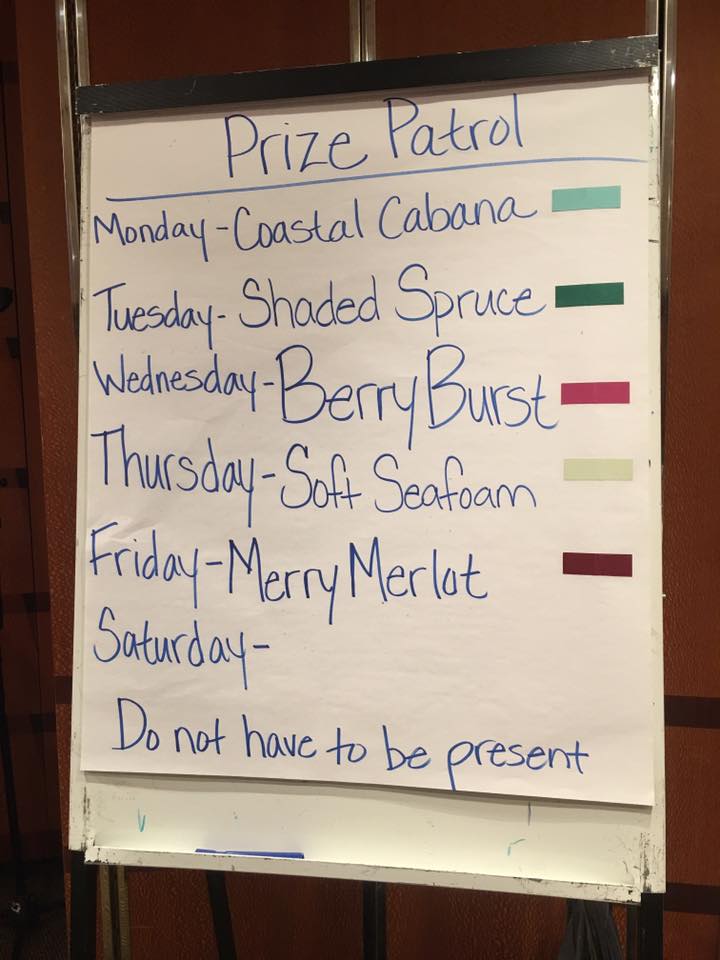 Prize Patrol
Monday-Coastal Cabana
Tuesday-Shaded Spruce
Wednesday-Berry Burst
Thursday-Soft Seafoam
Friday-Merry Merlot
Saturday-
Do not have to be present